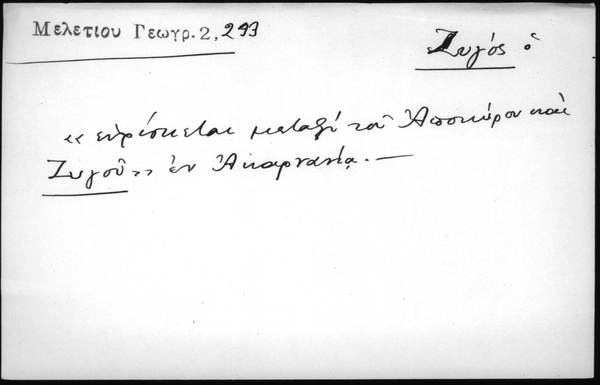 Μελετίου Γεωγρ. 2, 293
Ζυγός ὁ
«εὑρίσκεται μεταξὺ τοῦ Ἀποκούρου καὶ
Ζυγοῦ» ἐν Ἀκαρνανίᾳ. —